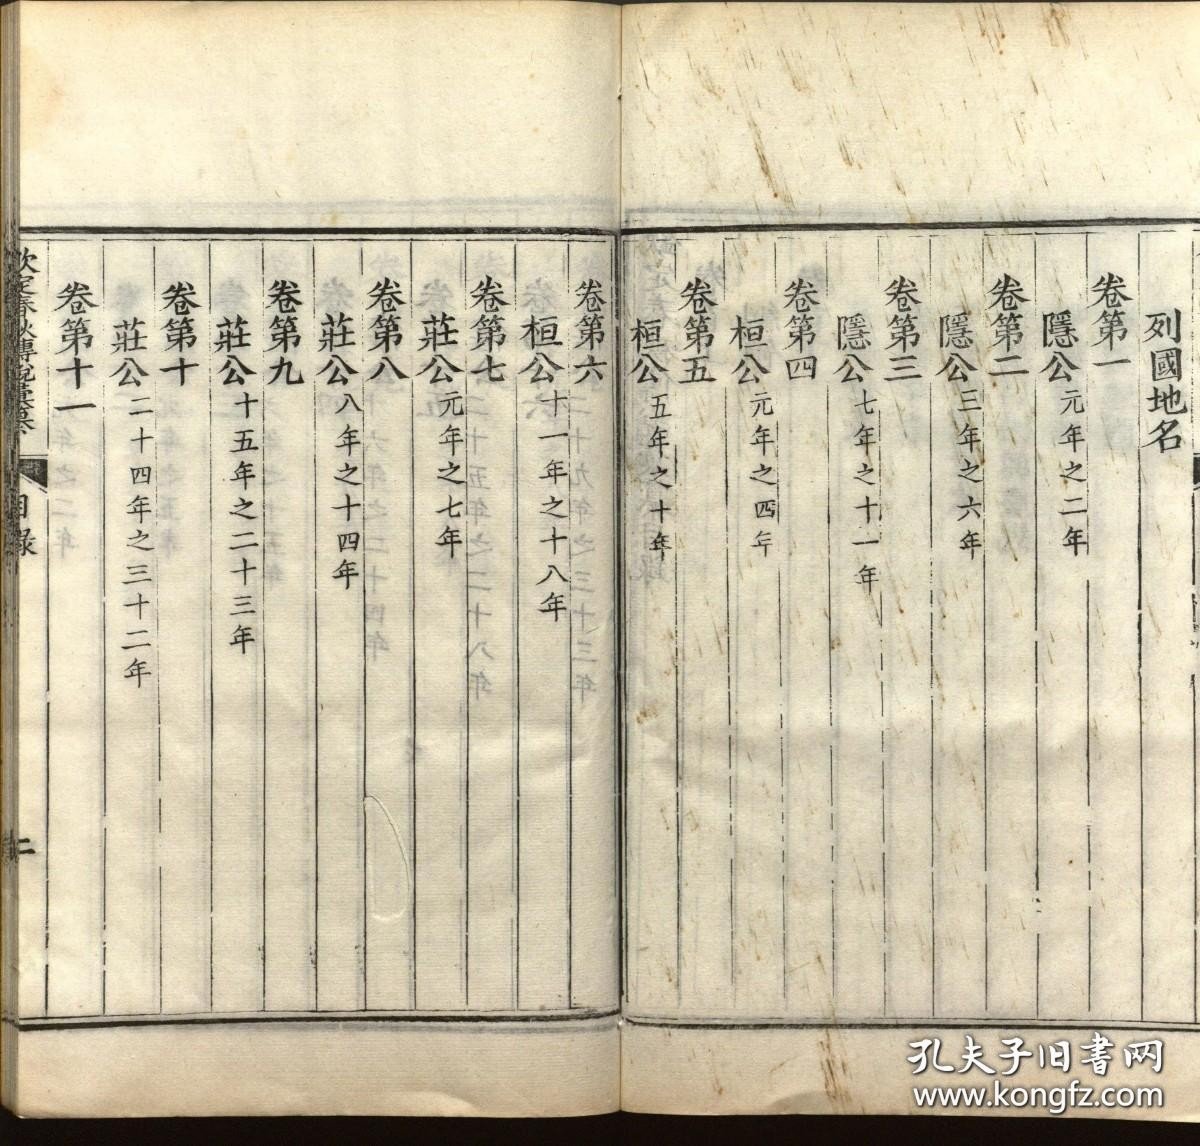 列國地名
卷第一
隱公元年之二年
卷第二
隱公三年之六年
卷第三
隱公七年之十一年
卷第四
桓公元年之四年
卷第五
桓公五年之十年
卷第六
桓公十一年之十八年
卷第七
莊公元年之七年
卷第八
莊公八年之十四年
卷第九
莊公十五年之二十三年
卷第十
莊公二十四年之三十二年
卷第十一
欽定春秋傳說彙纂
目錄
二
孔夫子旧书网
www.kongfz.com